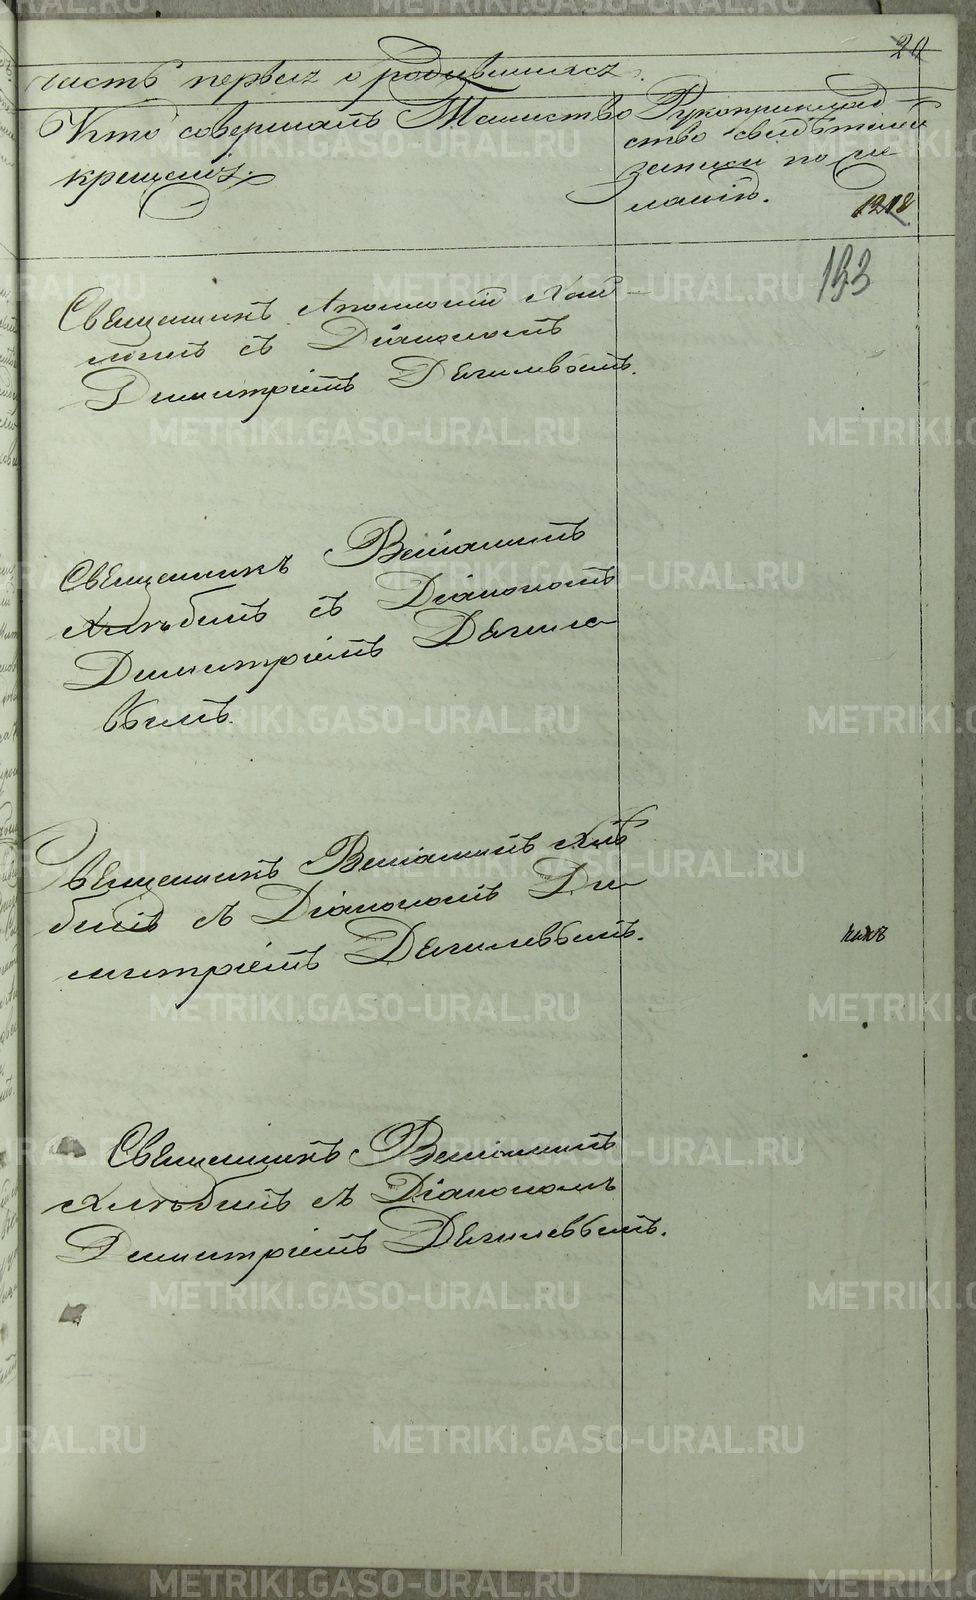 20
часть первая о родившихся.
Кто совершалъ Таинство
крещенія.
Рукоприклад
ство свидѣтелей
записи по же
ланію.
1218
193
Священникъ
съ Діакономъ
Димитріемъ Дягилевымъ.
Священникъ Веніаминъ
Хлѣбинъ съ Діакономъ
Димитріемъ Дягиле
вымъ.
Священникъ Веніаминъ Хлѣ
бинъ съ Діакономъ Ди
митріемъ Дягилевымъ.
Священникъ Веніаминъ
Хлѣбинъ съ Діакономъ
Димитріемъ Дягилевымъ.
METRIKI.GASO-URAL.RU